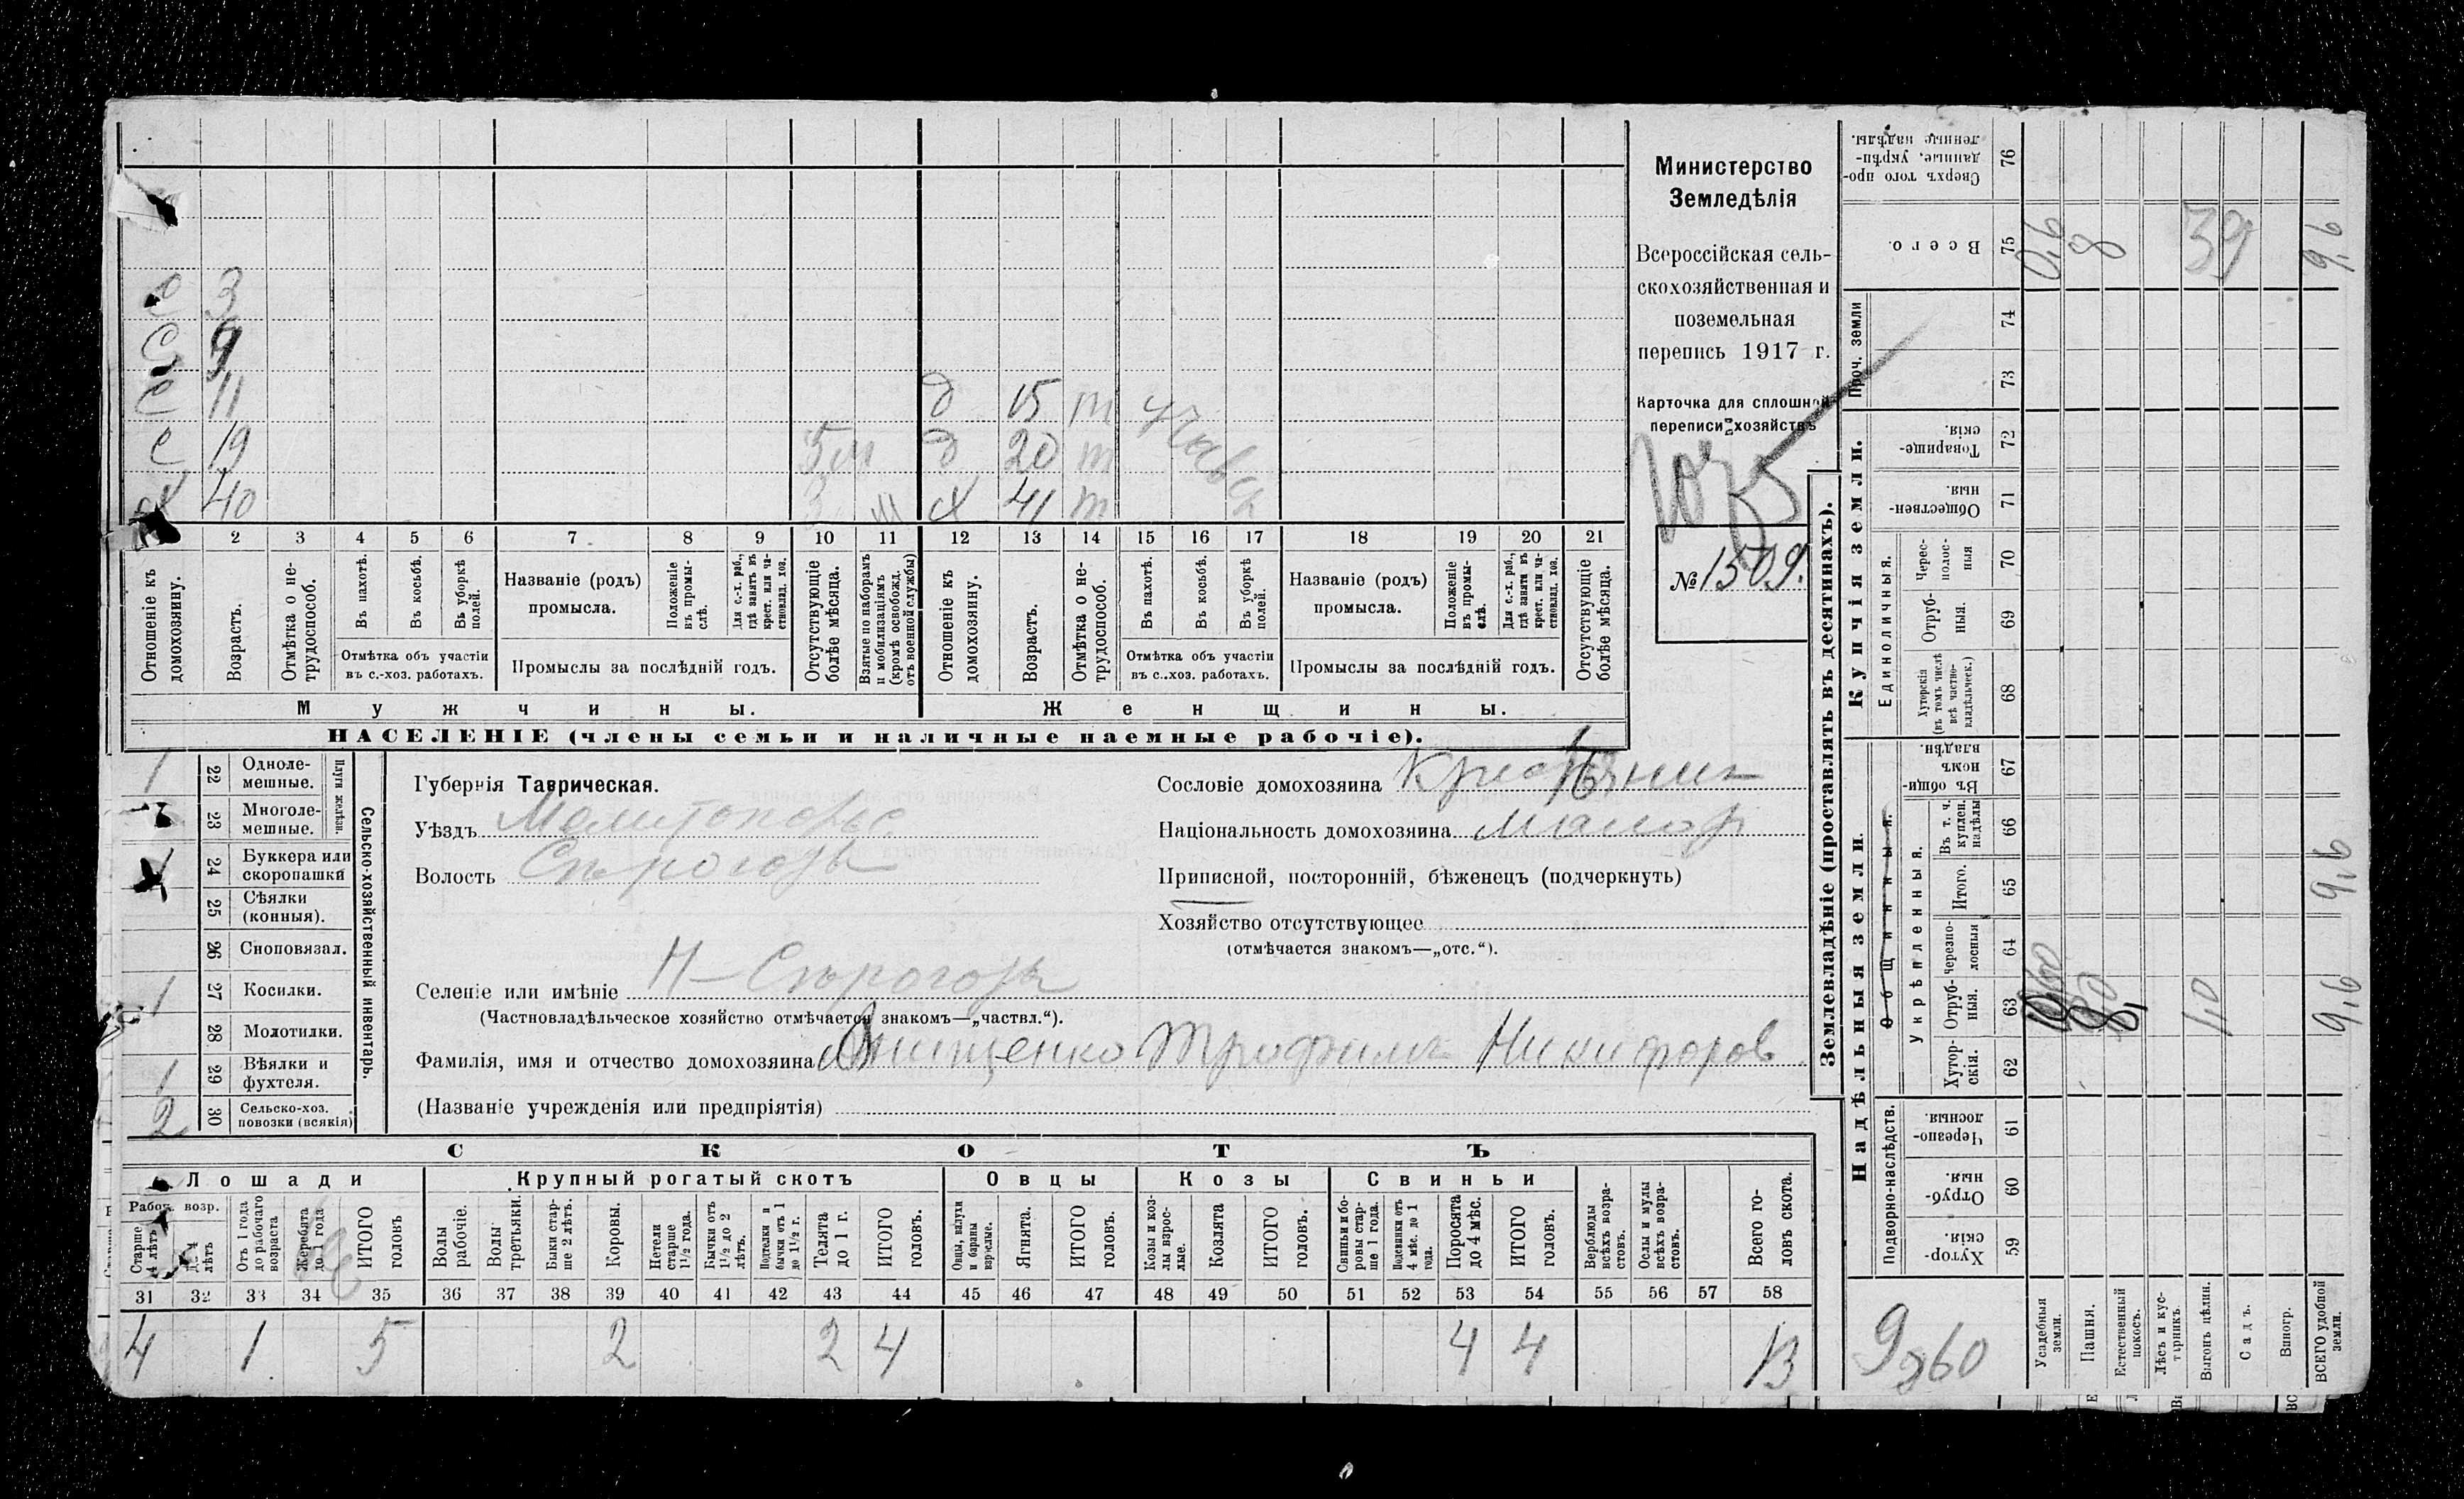 Министерство
Земледѣлія
Всероссійская сель-
скохозяйственная и
поземельная
перепись 1917 г.
Карточка для сплошной
переписи хозяйствъ
№ 1509.
З
9
С 11 д 15 т
С 19 5 м д 20 т
Х 40 м Х 41 т
2 3 4 5 6 7 8 9 10 11 12 13 14 15 16 17 18 19 20 21
Отношеніе къ домохозяину.
Возрастъ.
Отмѣтка о не-трудоспособ.
Въ пахотѣ.
Въ косьбѣ.
Въ уборкѣ полей.
Отмѣтка объ участіи
въ с.-хоз. работахъ.
Названіе (родъ)
промысла.
Положеніе въ промы-слѣ.
Для с.-х. раб., гдѣ занятъ въ крест. или ча-стновлад. хоз.
Промыслы за послѣдній годъ.
Отсутствующіе болѣе мѣсяца.
Взятые по наборамъ и мобилизаціямъ (кромѣ освобожд. отъ военной службы)
Отношеніе къ домохозяину.
Возрастъ.
Отмѣтка о не-трудоспособ.
Въ пахотѣ.
Въ косьбѣ.
Въ уборкѣ полей.
Отмѣтка объ участіи
въ с.-хоз. работахъ.
Названіе (родъ)
промысла.
Положеніе въ промы-слѣ.
Для с.-х. раб., гдѣ заняты въ крест. или ча-стновлад. хоз.
Промыслы за послѣдній годъ.
Отсутствующіе болѣе мѣсяца.
Мужчины.
Женщины.
НАСЕЛЕНІЕ (члены семьи и наличные наемные рабочіе).
Сельско-хозяйственный инвентарь.
Плуги желѣзн.
1 22 Одноле-мешные.
23 Многоле-мешные.
24 Буккера или скоропашки
25 Сѣялки (конныя).
26 Сноповязал.
1 27 Косилки.
28 Молотилки.
1 29 Вѣялки и фухтеля.
2 30 Сельско-хоз. повозки (всякія)
Губернія Таврическая.
Уѣздъ
Волость
Селеніе или имѣніе
(Частновладѣльческое хозяйство отмѣчается знакомъ—„частвл.“).
Фамилія, имя и отчество домохозяина Онищенко Трофимъ Никифоров
(Названіе учрежденія или предпріятія)
Сословіе домохозяина
Національность домохозяина малор
Приписной, посторонній, бѣженецъ (подчеркнуть)
Хозяйство отсутствующее
(отмѣчается знакомъ—„отс.“).
СКОТЪ
Лошади
Крупный рогатый скотъ
Овцы
Козы
Свиньи
Работ. возр.
Старше 4 лѣтъ
До 4 лѣтъ
Отъ 1 года до рабочаго возраста
Жеребята до 1 года
ИТОГО головъ
Волы рабочіе.
Волы третьяки.
Быки стар-ше 2 лѣтъ.
Коровы.
Нетели старше 1½ года.
Бычки отъ 1½ до 2 лѣтъ.
Подтелки и бычки отъ 1 до 1½ г.
Телята до 1 г.
ИТОГО головъ.
Овцы, валухи и бараны взрослые.
Ягнята.
ИТОГО головъ.
Козы и коз-лы взрос-лые.
Козлята
ИТОГО головъ.
Свиньи и бо-ровы стар-ше 1 года.
Подсвинки отъ 4 мѣс. до 1 года.
Поросята до 4 мѣс.
ИТОГО головъ.
Верблюды всѣхъ возра-стовъ.
Ослы и мулы всѣхъ возра-стовъ.
Всего го-ловъ скота.
31 32 33 34 35 36 37 38 39 40 41 42 43 44 45 46 47 48 49 50 51 52 53 54 55 56 57 58
4 1 5 2 2 4 4 4 13
Землевладѣніе (проставлять въ десятинахъ).
Надѣльныя земли.
Купчія земли.
Проч. земли
Подворно-наслѣдств.
Общинныя.
Укрѣпленныя.
Единоличныя.
Хутор-скія. 59
Отруб-ныя. 60
Черезпо-лосныя 61
Хутор-скія. 62
Отруб-ныя. 63
черезпо-лосныя 64
Итого. 65
Въ т. ч. куплен. надѣлы 66
Въ общи-номъ владѣн. 67
Хуторскія (въ томъ числѣ всѣ частно-владѣльческ.) 68
Отруб-ныя. 69
Черес-полос-ныя 70
Обществен-ныя 71
Товарище-скія. 72
73
74
Всего. 75
Сверхъ того про-данные, укрѣп-ленные надѣлы. 76
Усадебныя земли. 0,6
Пашня. 8
Естественный покосъ.
Лѣсъ и кус-тарникъ.
Выгонъ цѣлин. 1,0
Садъ.
Виногр.
ВСЕГО удобной земли. 9,6 9,6 9,6